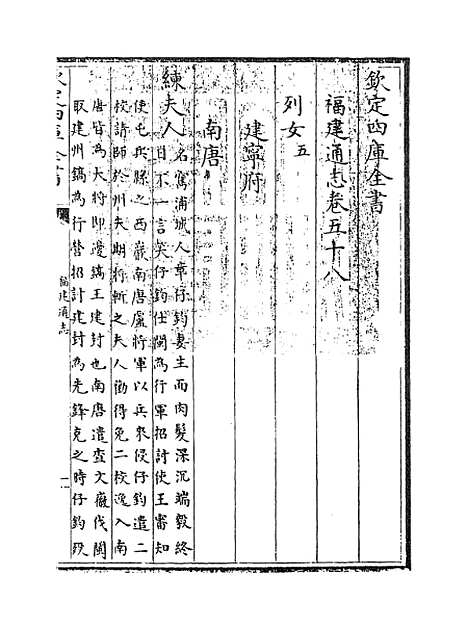 欽定四庫全書
福建通志卷五十八
列女五
建寧府
南唐
練夫人名寯浦城人章仔鈞妻生而肉髮深沉端毅終
日不一言笑仔鈞仕閩為行軍招討使王審知
使屯兵縣之西巖南唐盧將軍以兵來侵仔鈞遣二
校請師於州失期將斬之夫人勸得免二校逸入南
唐皆為大將即邊鎬王建封也南唐遣查文徽伐閩
取建州鎬為行營招討建封為先鋒克之時仔鈞殁
欽定四庫全書
福建通志